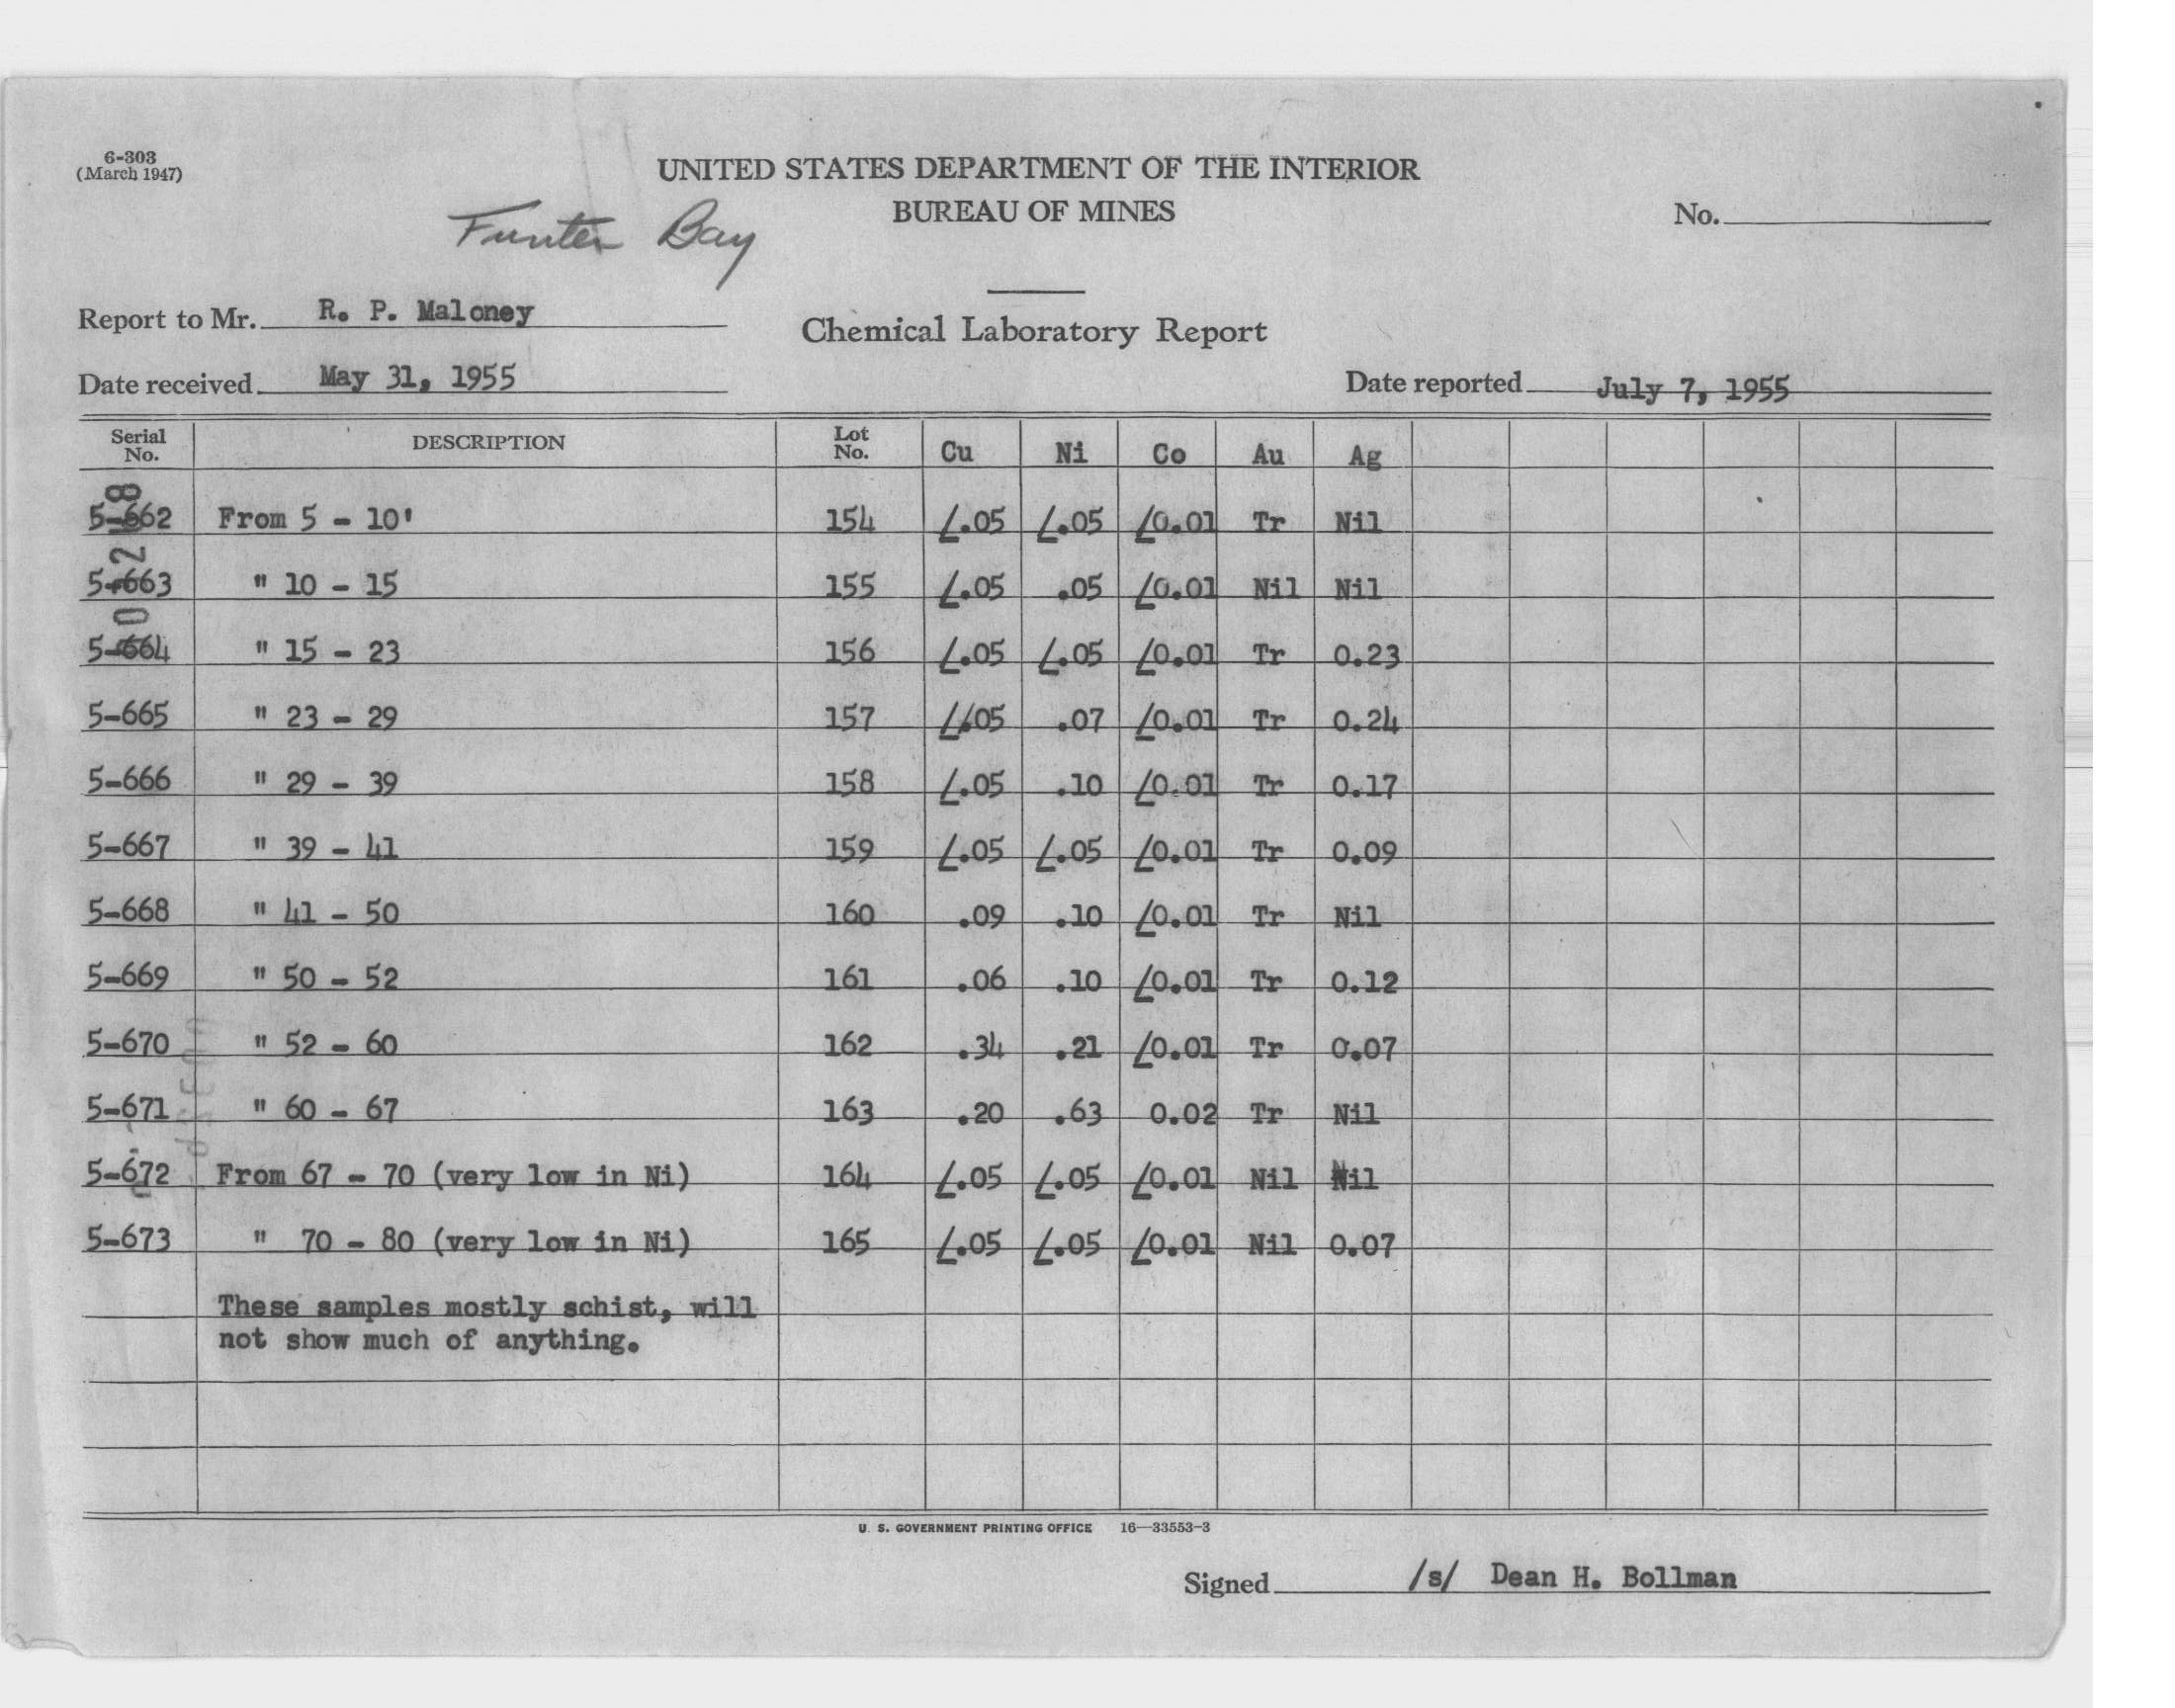 6-303
(March 1947)
UNITED STATES DEPARTMENT OF THE INTERIOR
BUREAU OF MINES
No.
Funter Bay
Report to Mr. R. P. Maloney
Chemical Laboratory Report
Date received May 31, 1955
Date reported July 7, 1955
Serial No. DESCRIPTION Lot No. Cu Ni Co Au Ag
5-662 From 5 - 10' 154 <.05 <.05 <0.01 Tr Nil
5-663 " 10 - 15 155 <.05 .05 <0.01 Nil Nil
5-664 " 15 - 23 156 <.05 <.05 <0.01 Tr 0.23
5-665 " 23 - 29 157 <.05 .07 <0.01 Tr 0.24
5-666 " 29 - 39 158 <.05 .10 <0.01 Tr 0.17
5-667 " 39 - 41 159 <.05 <.05 <0.01 Tr 0.09
5-668 " 41 - 50 160 .09 .10 <0.01 Tr Nil
5-669 " 50 - 52 161 .06 .10 <0.01 Tr 0.12
5-670 " 52 - 60 162 .34 .21 <0.01 Tr 0.07
5-671 " 60 - 67 163 .20 .63 0.02 Tr Nil
5-672 From 67 - 70 (very low in Ni) 164 <.05 <.05 <0.01 Nil Nil
5-673 " 70 - 80 (very low in Ni) 165 <.05 <.05 <0.01 Nil 0.07
These samples mostly schist, will
not show much of anything.
U. S. GOVERNMENT PRINTING OFFICE 16—33553-3
Signed /s/ Dean H. Bollman